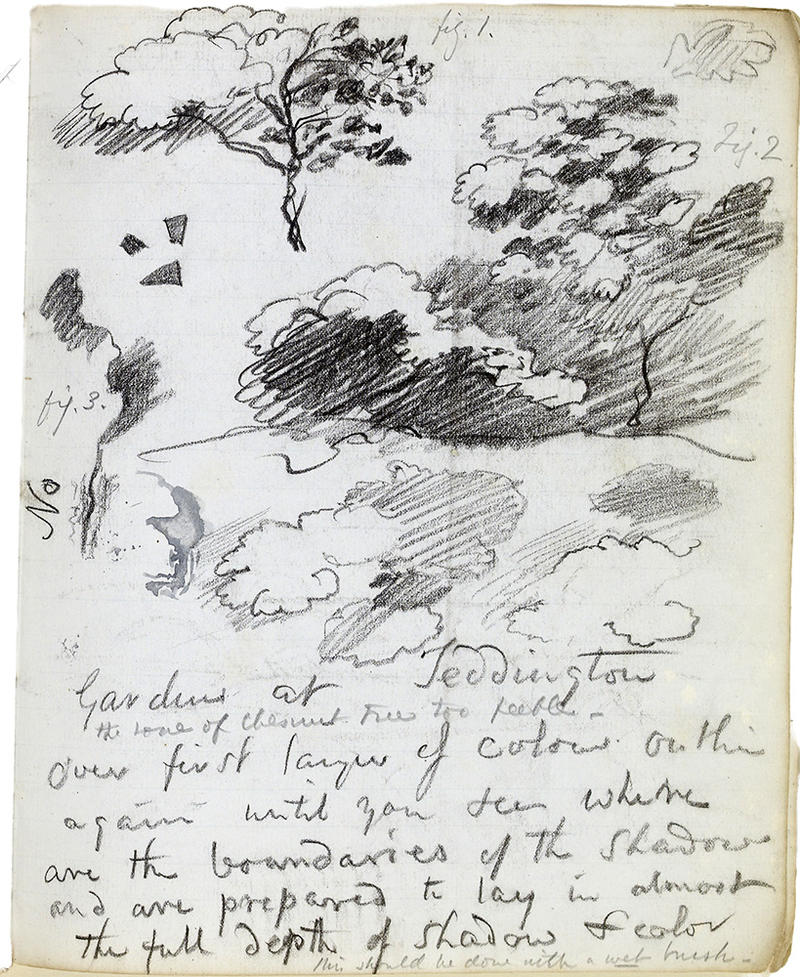 fig. 1.
Fig. 2
fig. 3.
No
Garden at Teddington
the tone of chesnut tree too feeble -
over first layer of colour outline
again until you see where
are the boundaries of the shadow
and are prepared to lay in almost
the full depth of shadow & color
this should be done with a wet brush -